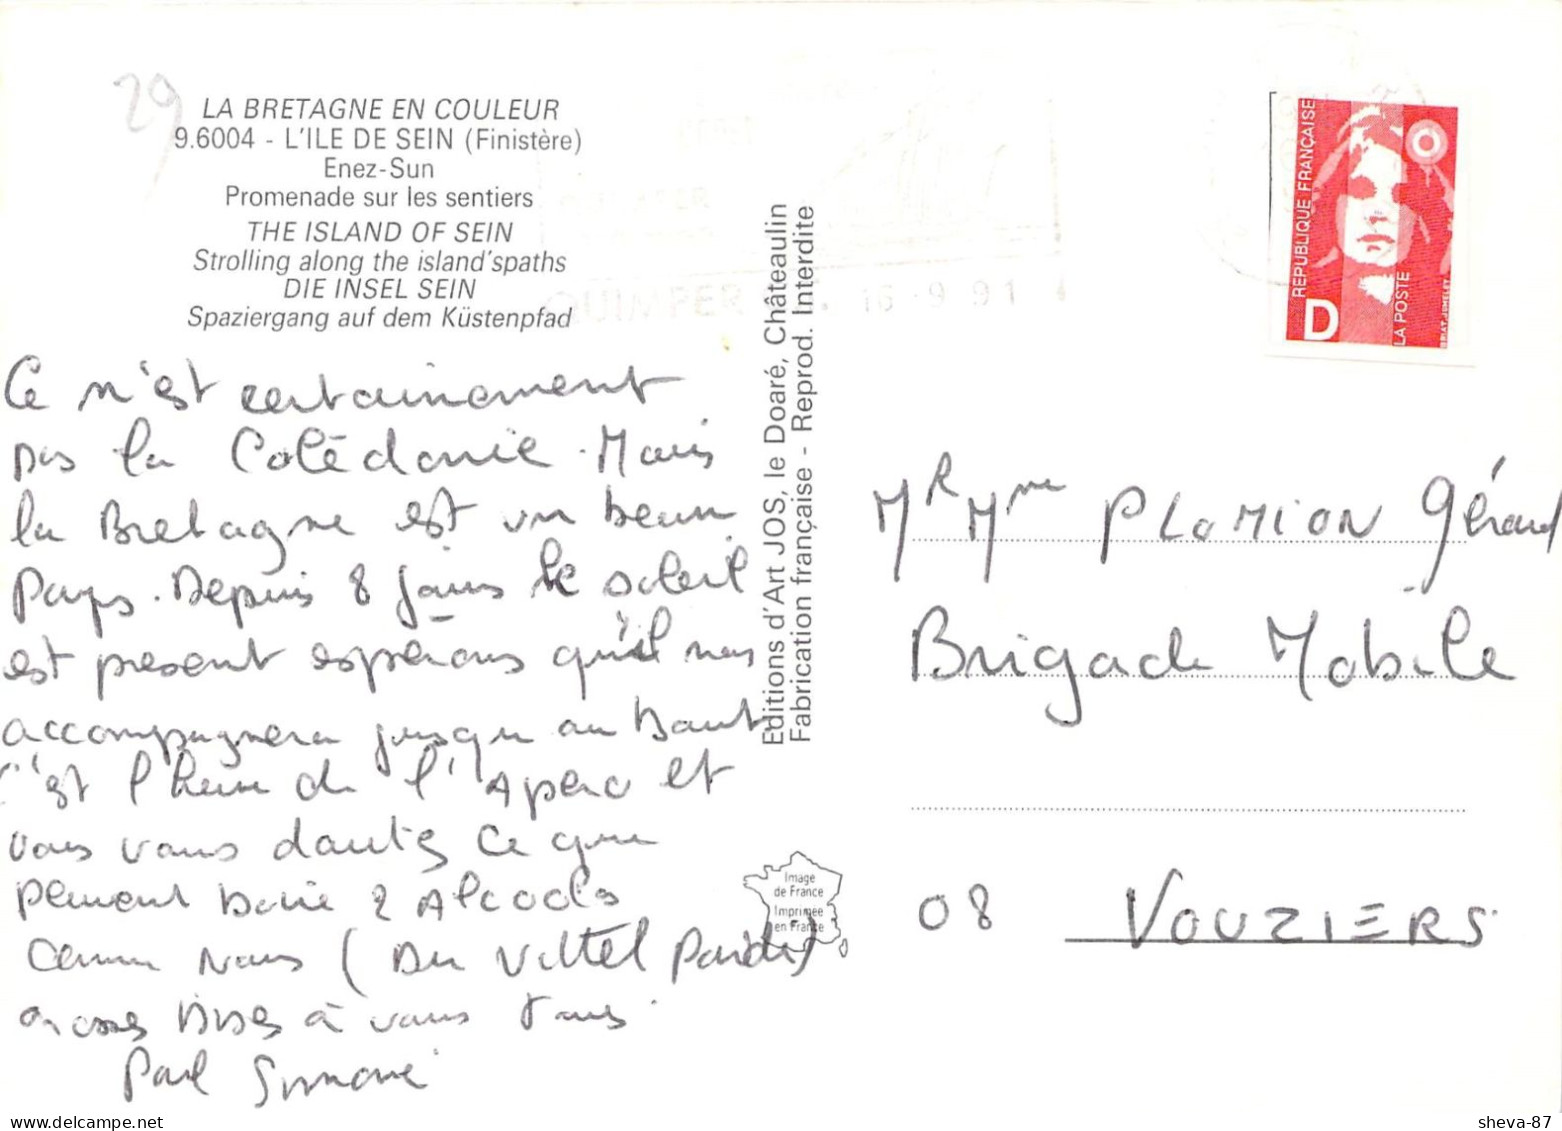 29
LA BRETAGNE EN COULEUR
9.6004 - L'ILE DE SEIN (Finistère)
Enez-Sun
Promenade sur les sentiers
THE ISLAND OF SEIN
Strolling along the island'spaths
DIE INSEL SEIN
Spaziergang auf dem Küstenpfad
QUIMPER 16-9 91
Ce n'est certainement
pas la Calédonie. Mais
la Bretagne est un beau
pays. Depuis 8 jours le soleil
est présent espérons qu'il nous
accompagnera jusqu'au bout
C'est l'heure de l'Apero et
vous vous doutez ce que
peuvent boire 2 Alcoolos
comme nous (Du Vittel Pardi)
grosses bises à vous tous.
Paul Simone
Editions d'Art JOS, le Doaré, Châteaulin
Fabrication française - Reprod. Interdite
Image
de France
Imprimée
en France
RÉPUBLIQUE FRANÇAISE
D
LA POSTE
BRIAT JUMELET
MR Mme PLOMION Gérard
Brigade Mobile
08 VOUZIERS
sheva-87